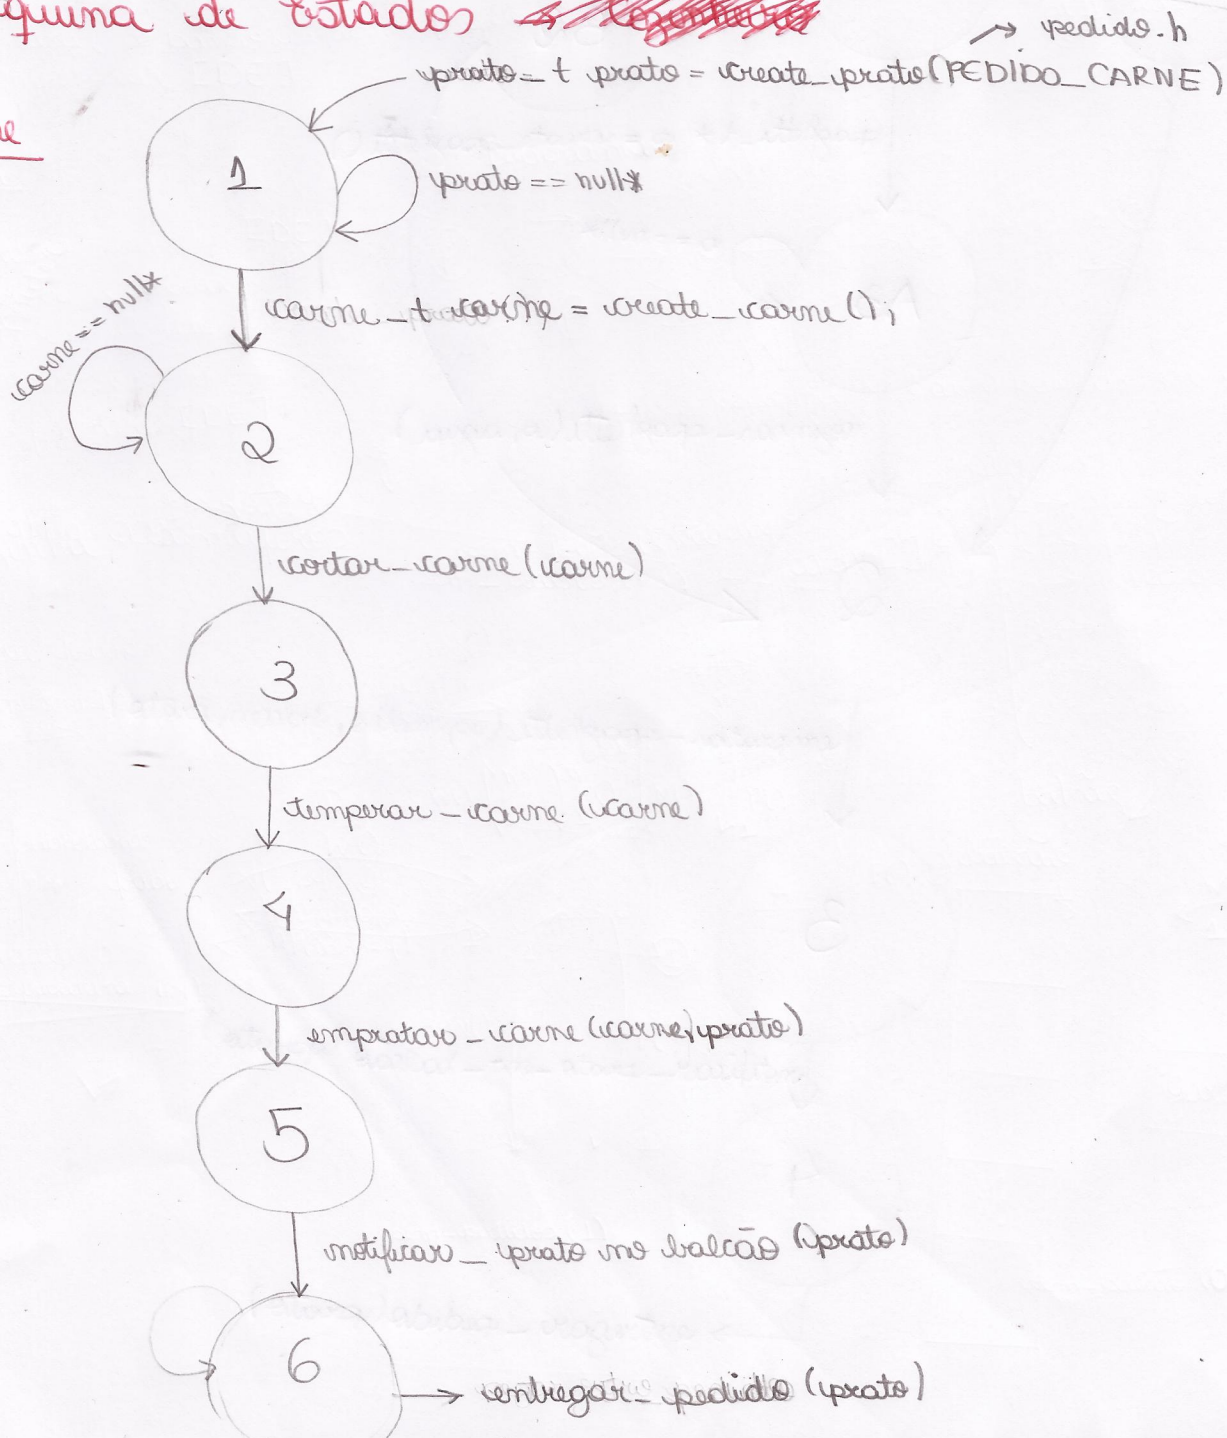 quina de Estados →
→ pedido.h
prato_t prato = create_prato(PEDIDO_CARNE)
1
prato == null*
carne_t carne = create_carne();
carne == null*
2
cortar_carne(carne)
3
temperar_carne(carne)
4
empratar_carne(carne, prato)
5
notificar_prato no balcão (prato)
6
entregar_pedido (prato)